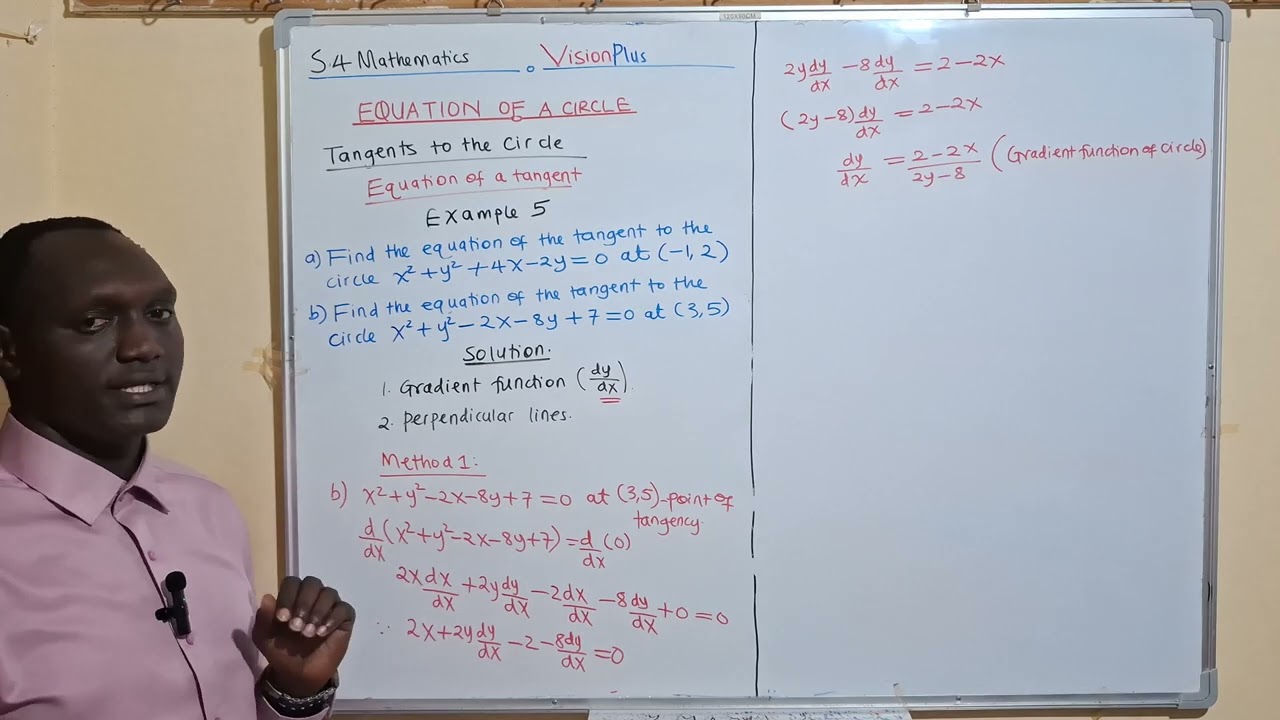 125X90CM
S.4 Mathematics VisionPlus
EQUATION OF A CIRCLE
Tangents to the Circle
Equation of a tangent
Example 5
a) Find the equation of the tangent to the
circle x² + y² + 4x - 2y = 0 at (-1, 2)
b) Find the equation of the tangent to the
circle x² + y² - 2x - 8y + 7 = 0 at (3, 5)
Solution.
1. Gradient function (dy/dx).
2. perpendicular lines.
Method 1:
b) x² + y² - 2x - 8y + 7 = 0 at (3,5) - point of
tangency.
d/dx (x² + y² - 2x - 8y + 7) = d/dx (0)
2x dx/dx + 2y dy/dx - 2 dx/dx - 8 dy/dx + 0 = 0
∵ 2x + 2y dy/dx - 2 - 8dy/dx = 0
2y dy/dx - 8 dy/dx = 2 - 2x
(2y - 8) dy/dx = 2 - 2x
dy/dx = 2 - 2x/2y - 8 (Gradient function of circle)